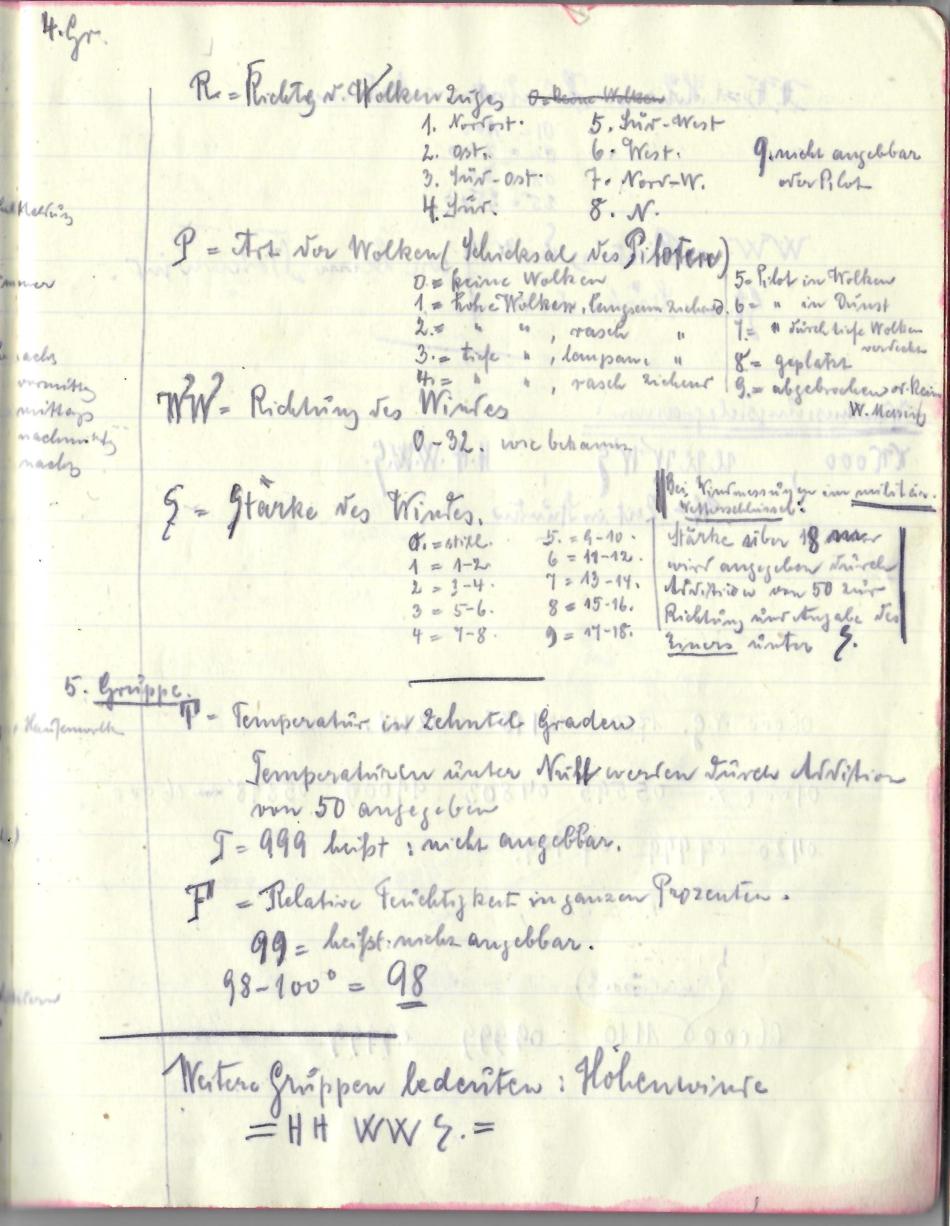 4. Gr.
R. = Richtg v. Wolkenzuges 0 = keine Wolken
1. Nordost. 5. Süd-West
2. Ost. 6. West.
3. Süd-Ost. 7. Nord-W.
4. Süd. 8. N.
9. nicht angebbar
oder Pilot
P = Art der Wolken (Schicksal des Piloten)
0 = keine Wolken
1 = hohe Wolken, langsam ziehend.
2. = " " , rasch "
3. = tiefe " , langsam "
4. = " " , rasch ziehend
5 = Pilot in Wolken
6 = " in Dunst
7 = " durch tiefe Wolken
verdeckt
8 = geplatzt
9. = abgebrochen od. kein
W. Messung
WW = Richtung des Windes
0-32. wie bekannt.
S = Stärke des Windes.
0. = still. 5. = 9-10.
1 = 1-2 6 = 11-12.
2 = 3-4. 7 = 13-14.
3 = 5-6. 8 = 15-16.
4 = 7-8. 9 = 17-18.
Bei Windmessungen im militär.
Wetterschlüssel:
Stärke über 18
wird angegeben durch
Addition von 50 zur
Richtung und Angabe des
Einers unter S.
5. Gruppe.
T = Temperatur in Zehntel Graden
Temperaturen unter Null werden durch Addition
von 50 angegeben
T = 999 heißt: nicht angebbar.
F = Relative Feuchtigkeit in ganzen Prozenten.
99 = heißt: nicht angebbar.
98-100° = 98
Weitere Gruppen bedeuten: Höhenwinde
= HH WW S. =
nachts
vormittg
mittags
nachmittg
nachts
Haufenwolk